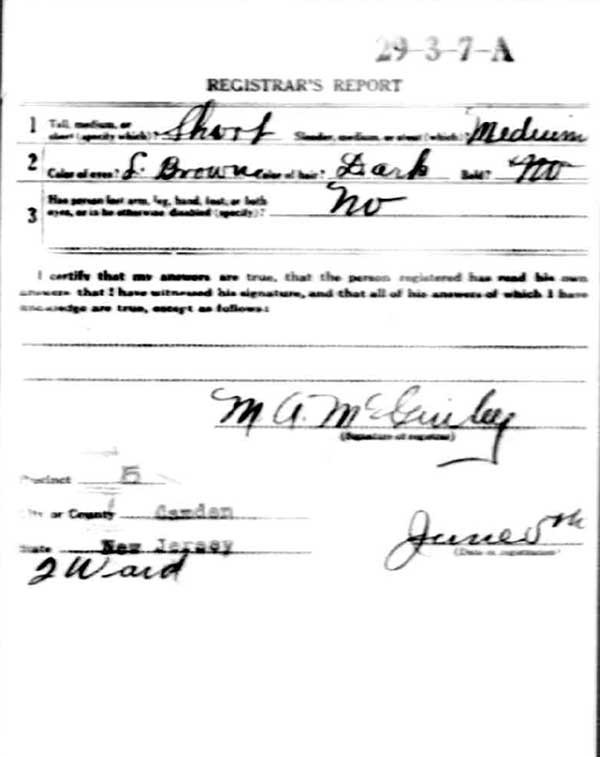 29-3-7-A
REGISTRAR'S REPORT
1 Tall, medium, or short (specify which)? Short Slender, medium, or stout (which)? Medium
2 Color of eyes? L. Brown Color of hair? Dark Bald? No
3 Has person lost arm, leg, hand, foot, or both eyes, or is he otherwise disabled (specify)? No
I certify that my answers are true, that the person registered has read his own
answers that I have witnessed his signature, and that all of his answers of which I have
knowledge are true, except as follows:
M A McGinley
(Signature of registrar)
Precinct 5
City or County Camden
State New Jersey
2 Ward
June 5th
(Date of registration)